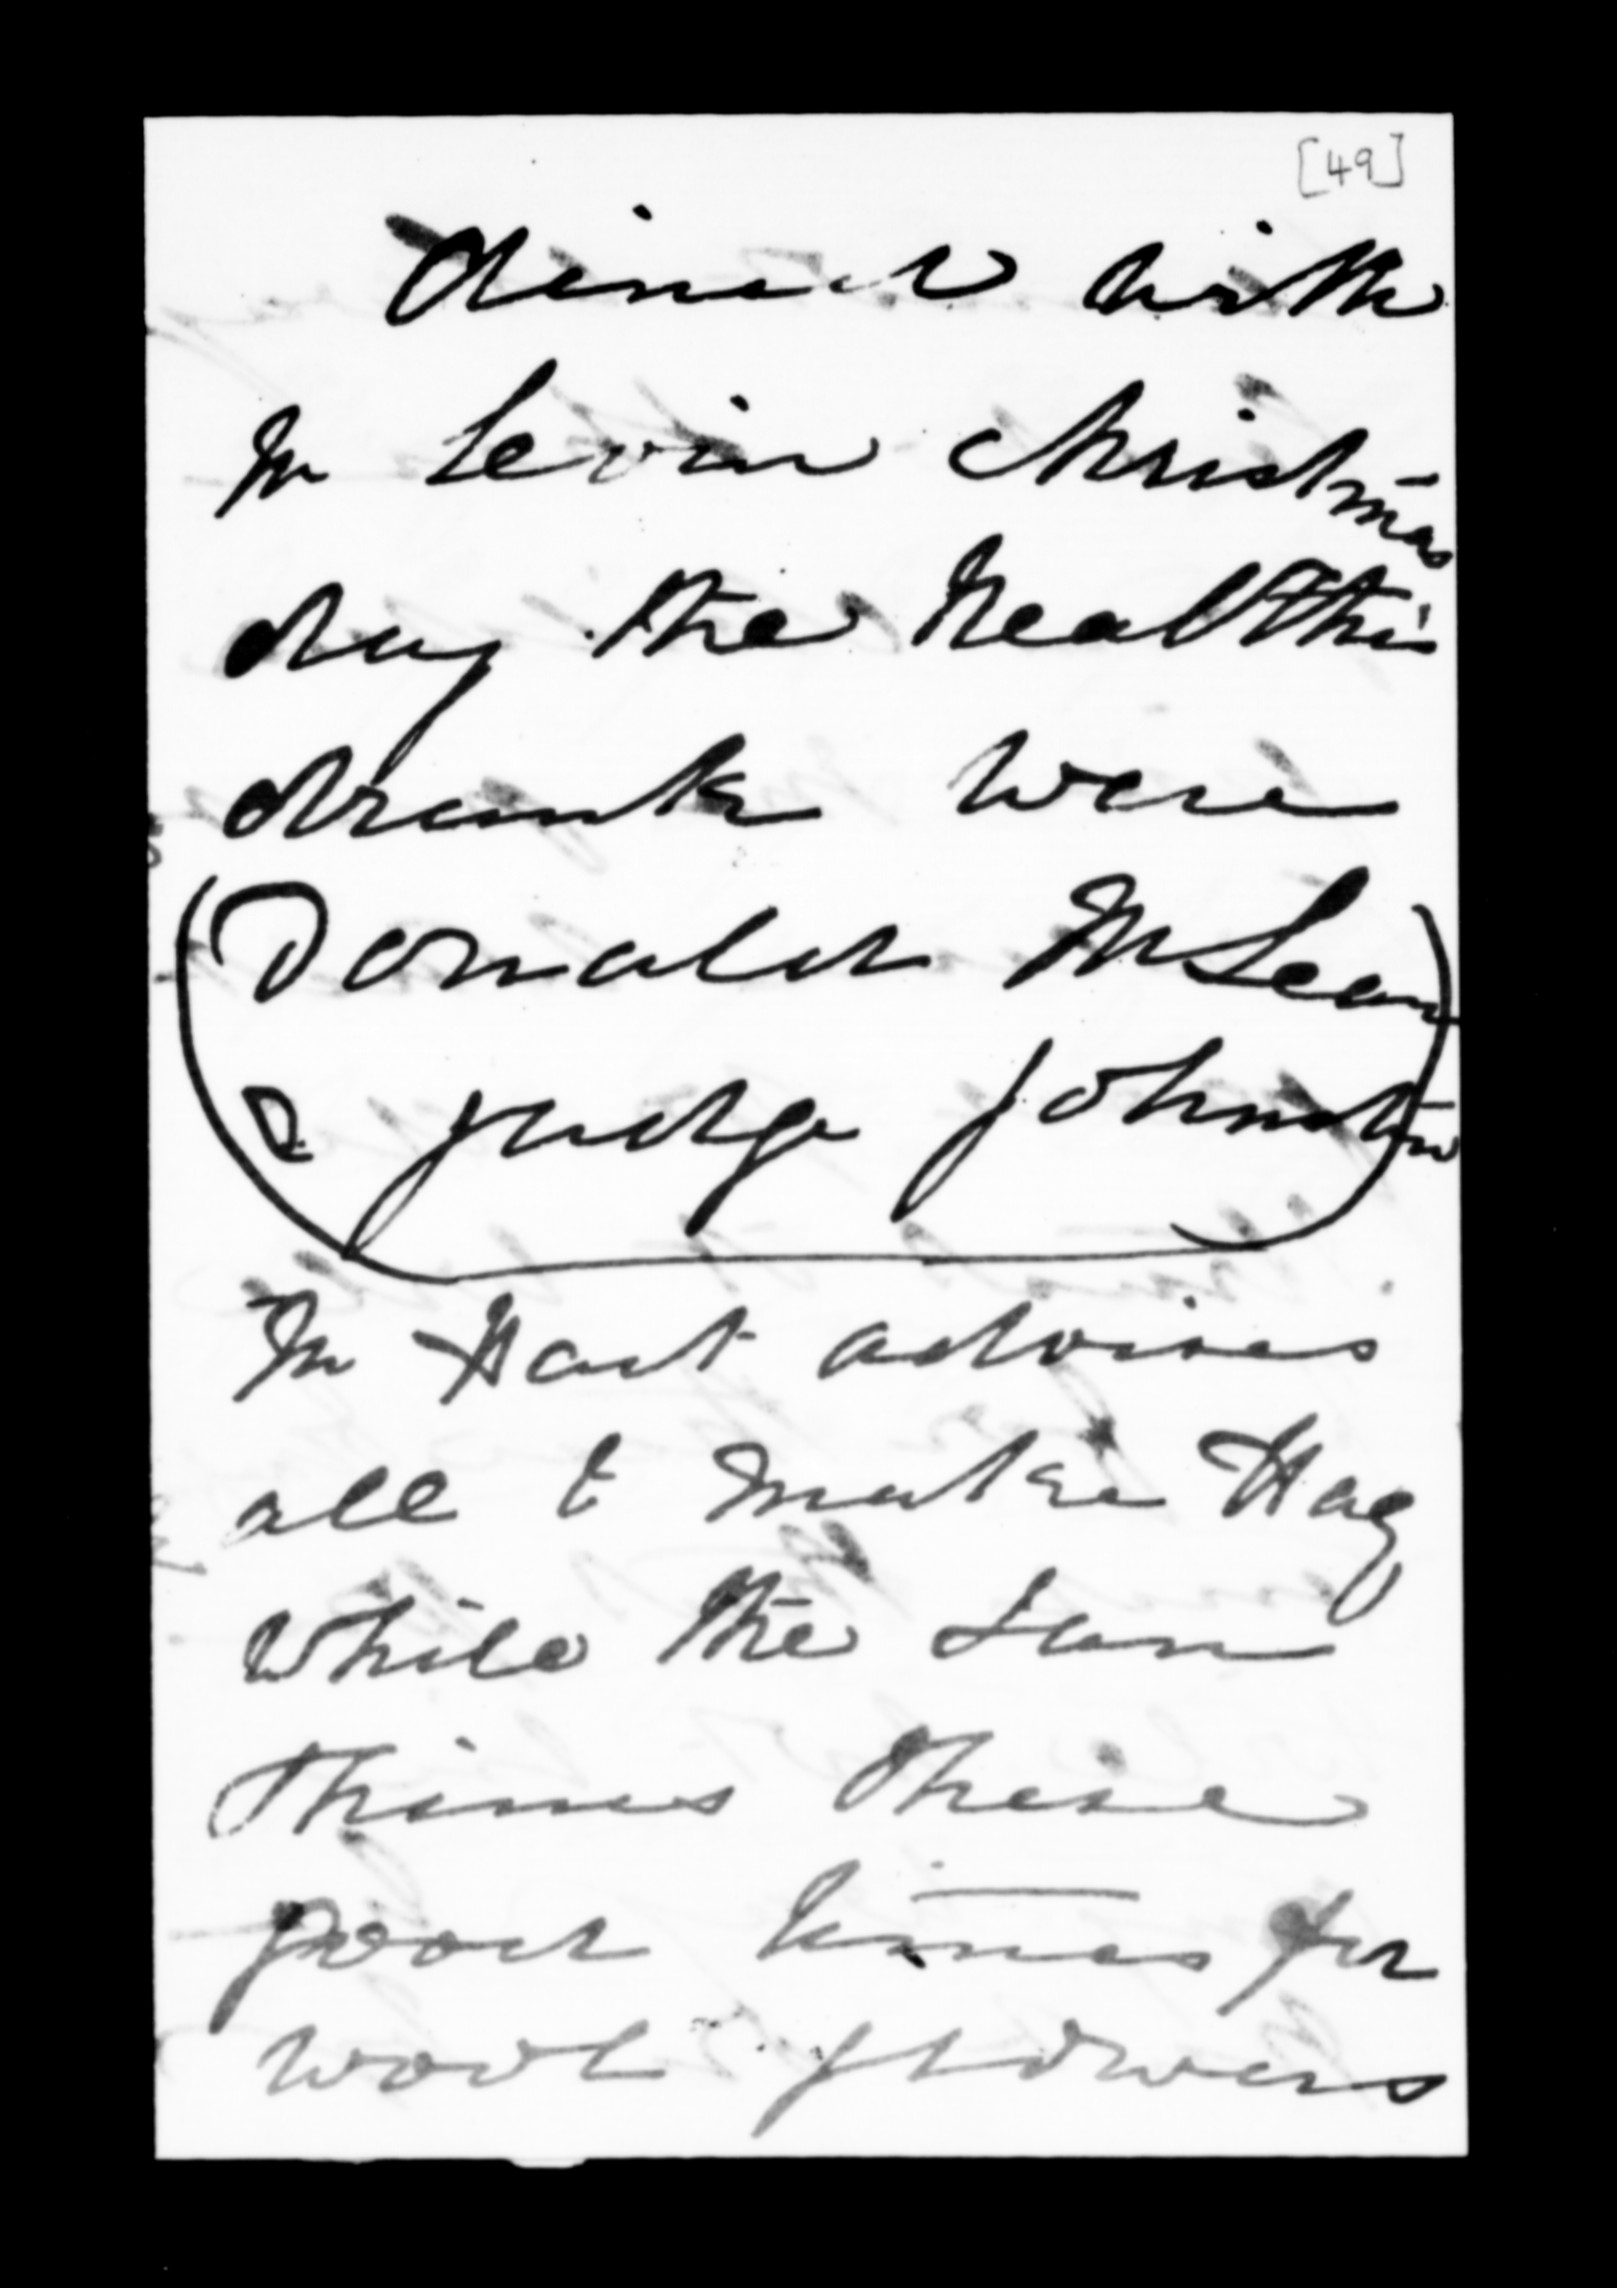 [49]
dined with
Mr Levin Christmas
day the Healths
drank were
Donald McLean
& Judge Johnston
Mr Hart advises
all to make Hay
while the Sun
Shines these
good times for
wool growers